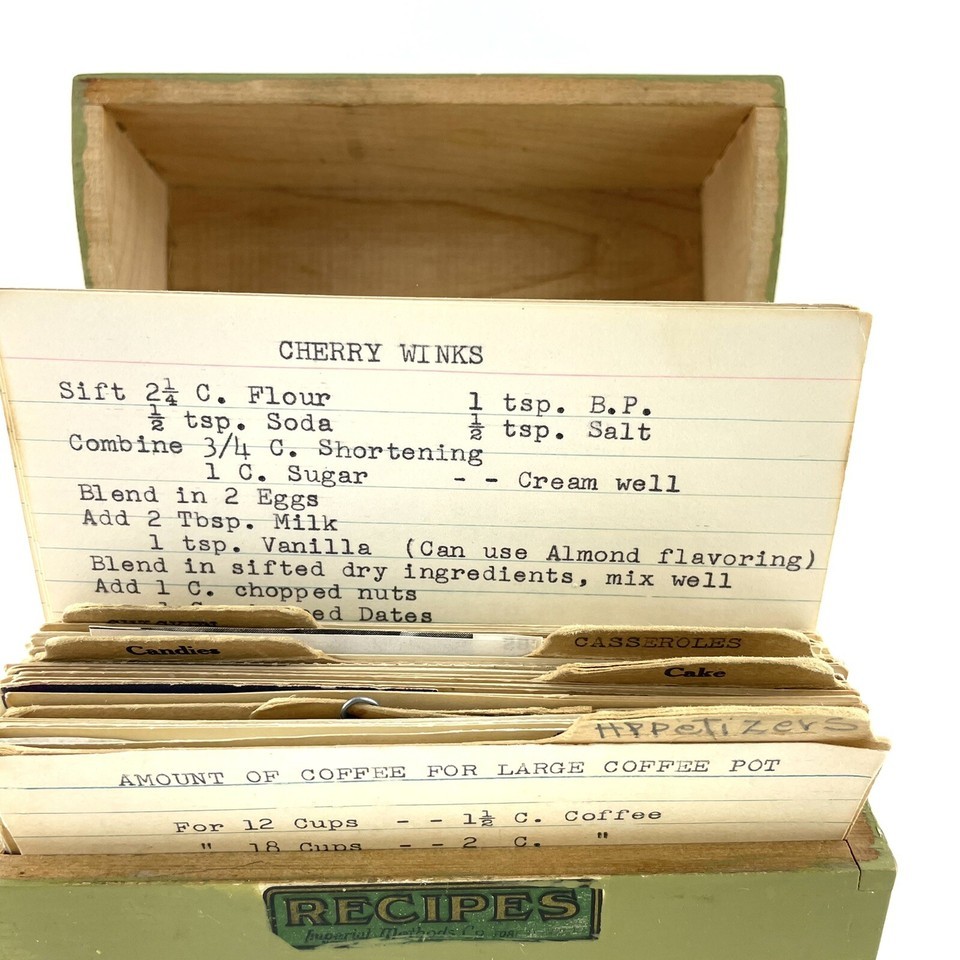 CHERRY WINKS
Sift 2¼ C. Flour 1 tsp. B.P.
½ tsp. Soda ½ tsp. Salt
Combine 3/4 C. Shortening
1 C. Sugar - - Cream well
Blend in 2 Eggs
Add 2 Tbsp. Milk
1 tsp. Vanilla (Can use Almond flavoring)
Blend in sifted dry ingredients, mix well
Add 1 C. chopped nuts
Dates
CASSEROLES
Candies
Cake
Appetizers
AMOUNT OF COFFEE FOR LARGE COFFEE POT
For 12 Cups - - 1½ C. Coffee
" 18 Cups - - 2 C. "
RECIPES
Imperial Methods Co.